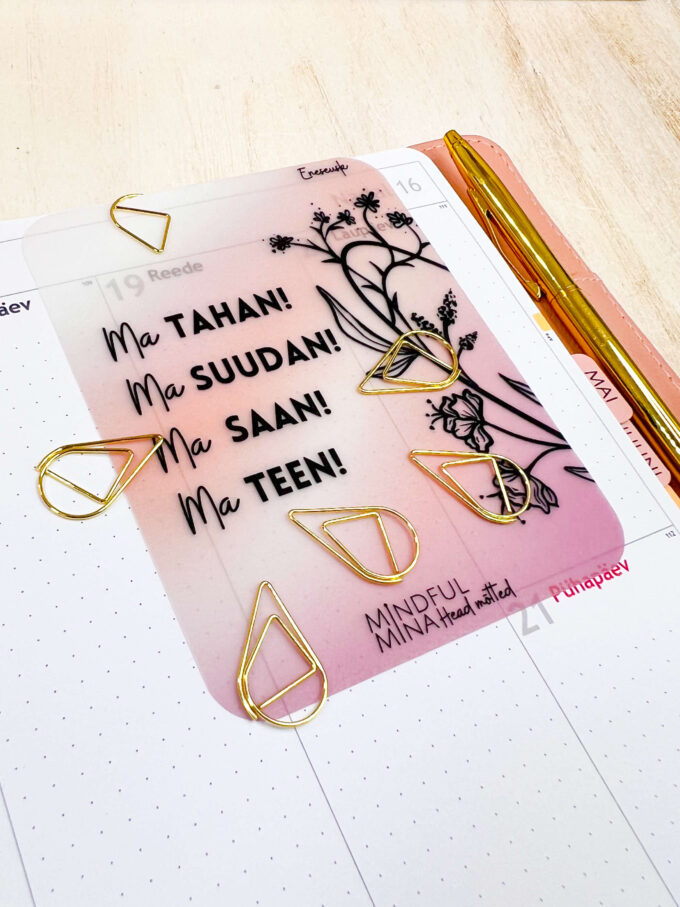 16
Eneseusk
Laupäev
19 Reede
äev
Ma TAHAN!
Ma SUUDAN!
Ma SAAN!
Ma TEEN!
MAI
JUUNI
MINDFUL
MINA Head mõtted
21 Pühapäev
112